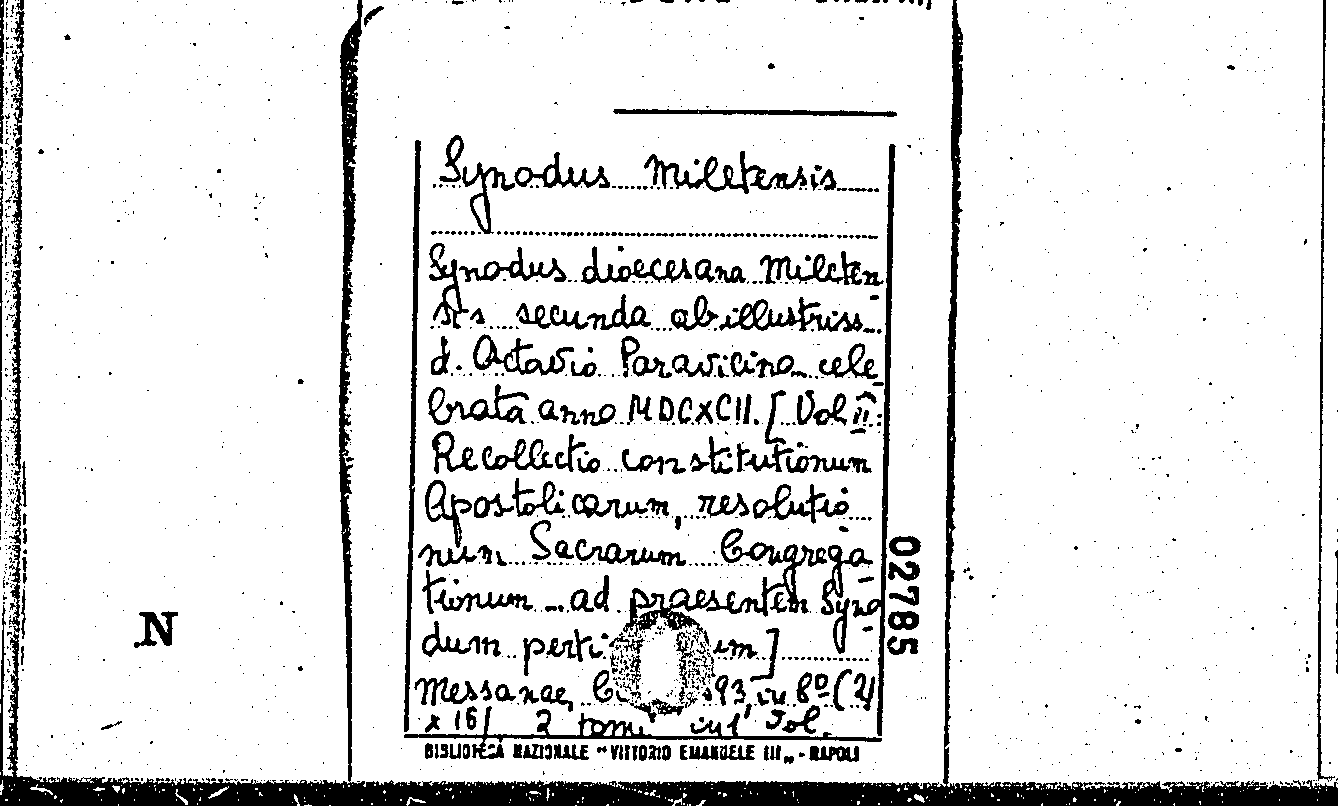 Synodus Miletensis
Synodus dioecesana Mileten-
sis secunda ab illustriss.
d. Octavio Paravicino cele-
brata anno MDCXCII. [Vol II:
Recollectio constitutionum
Apostolicarum, resolutio
num Sacrarum Congrega-
tionum ... ad praesentem Syno-
dum perti um]
Messanae, 93, in 8º (21
x 16). 2 tomi in 1 vol.
BIBLIOTECA NAZIONALE "VITTORIO EMANUELE III" - NAPOLI
02785
N